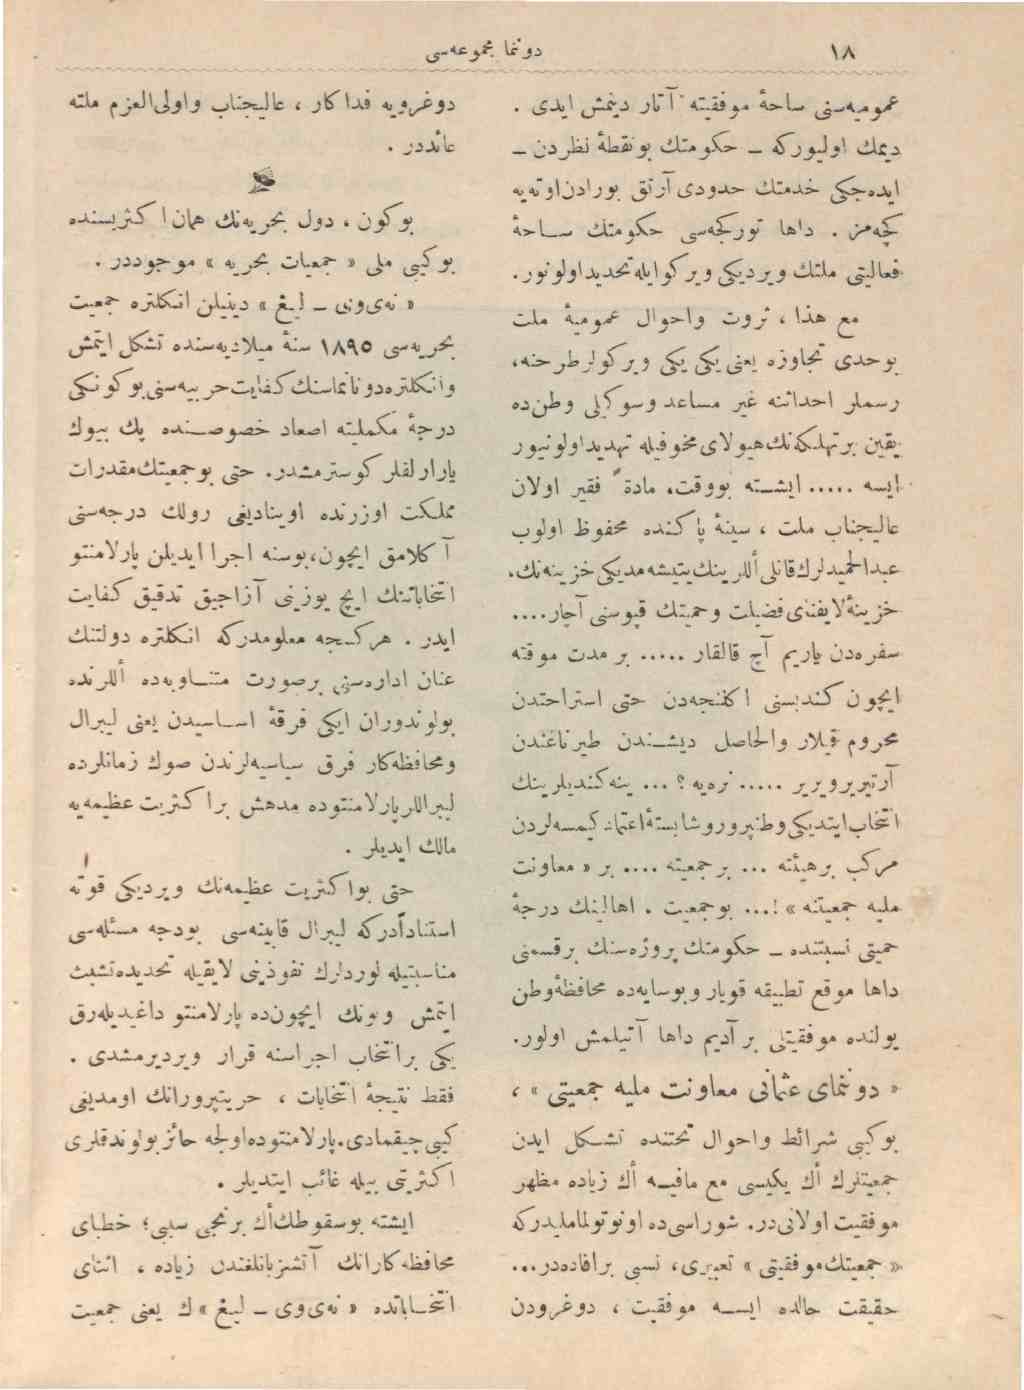 ١٨
دونما مجموعه‌سی
عمومیه‌سنی ساحهٔ موفقیته آتار دینمش ایدی .
دیمك اولیورکه ــ حکومتك بو نقطهٔ نظردن ــ
ایده‌جکی خدمتك حدودی آرتق بورادن اوته‌یه
کچه‌مز . داها تورکجه‌سی حکومتك ساحهٔ
فعالیتی ملتك ویردیکی ویرکو ایله تحدید اولونور.
مع هذا ، ثروت واحوال عمومیهٔ ملت
بوحدی تجاوزه یعنی یکی یکی ویرکولر طرحنه،
رسملر احداثنه غیر مساعد وسوکیلی وطن‌ده
یقین بر تهلکه‌نك هیولای مخوفیله تهدید اولونیور
ایسه ..... ایشته بووقت، مادةً فقیر اولان
عالیجناب ملت ، سینهٔ پاکنده محفوظ اولوب
عبدالحمیدلرك قانلی أللرینك یتیشه‌مدیکی خزینه‌نك،
خزینهٔ لایفنای فضیلت وحمیتك قپوسنی آچار....
سفره‌دن یاریم آچ قالقار ..... بر مدت موقته
ایچون کندیسنی اکلنجه‌دن حتی استراحتدن
محروم قیلار والحاصل دیشندن طیرناغندن
آرتیریر ویریر ..... نره‌یه ؟ ... ینه کندیلرینك
انتخاب ایتدیکی وطنپرور وشایستهٔ اعتماد کیمسه‌لردن
مرکب برهیئته ... برجمعیته .... بر « معاونت
ملیه جمعیتنه »!... بوجمعیت . اهالینك درجهٔ
حمیتی نسبتنده ــ حکومتك پروژه‌سنك برقسمنی
داها موقع تطبیقه قویار وبوسایه‌ده محافظهٔ وطن
یولنده موفقیتلی بر آدیم داها آتیلمش اولور.
« دونمای عثمانی معاونت ملیه جمعیتی » ،
بوکبی شرائط واحوال تحتنده تشکل ایدن
جمعیتلرك أك یکیسی مع مافیه أك زیاده مظهر
موفقیت اولانی‌در. شوراسی‌ده اونوتولماملیدرکه
« جمعیتك موفقیتی » تعبیری، نسبی برافاده‌در...
حقیقت حالده ایسه موفقیت ، دوغرودن
دوغرویه فداکار ، عالیجناب واولی‌العزم ملته
عائددر .
بوکون ، دول بحریه‌نك همان اکثریسنده
بوکبی ملی « جمعیات بحریه » موجوددر .
« نه‌ی‌وی ــ لیغ » دینیلن انکلتره جمعیت
بحریه‌سی ١٨٩٥ سنهٔ میلادیه‌سنده تشکل ایتمش
وانکلتره دونانماسنك کفایت حربیه‌سنی بوکونکی
درجهٔ مکملیته اصعاد خصوصنده پك بیوك
یارارلقلر کوسترمشدر. حتی بوجمعیتك مقدرات
مملکت اوزرنده اوینادیغی رولك درجه‌سنی
آکلامق ایچون، بوسنه اجرا ایدیلن پارلامنتو
انتخاباتنك ایچ یوزینی آزاجیق تدقیق کفایت
ایدر . هرکسجه معلومدرکه انکلتره دولتنك
عنان اداره‌سنی برصورت متناوبه‌ده أللرنده
بولوندوران ایکی فرقهٔ اساسیدن یعنی لیبرال
ومحافظه‌کار فرق سیاسیه‌لرندن صوك زمانلرده
لیبراللر پارلامنتوده مدهش براکثریت عظیمه‌یه
مالك ایدیلر .
حتی بواکثریت عظیمه‌نك ویردیکی قوته
استناداًدرکه لیبرال قابینه‌سی بودجه مسئله‌سی
مناسبتیله لوردلرك نفوذینی لایقیله تحدیده تشبث
ایتمش وبونك ایچون‌ده پارلامنتو داغیدیله‌رق
یکی برانتخاب اجراسنه قرار ویردیرمشدی .
فقط نتیجهٔ انتخابات ، حریتپرورانك اومدیغی
کبی چیقمادی. پارلامنتوده اولجه حائز بولوندقلری
اکثریتی بیله غائب ایتدیلر .
ایشته بوسقوطك أك برنجی سببی؛ خطبای
محافظه‌کارانك آتشزبانلغندن زیاده ، اثنای
انتخاباتده « نه‌ی‌وی ــ لیغ » ك یعنی جمعیت